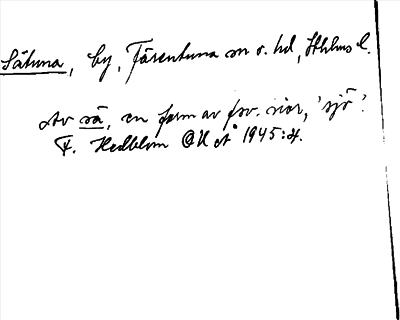 Såtuna, by, Färentuna sn o. hd, Sthlms l.
Av så, en form av fsv. sior, 'sjö'.
F. Hedblom OUÅ 1945:4.